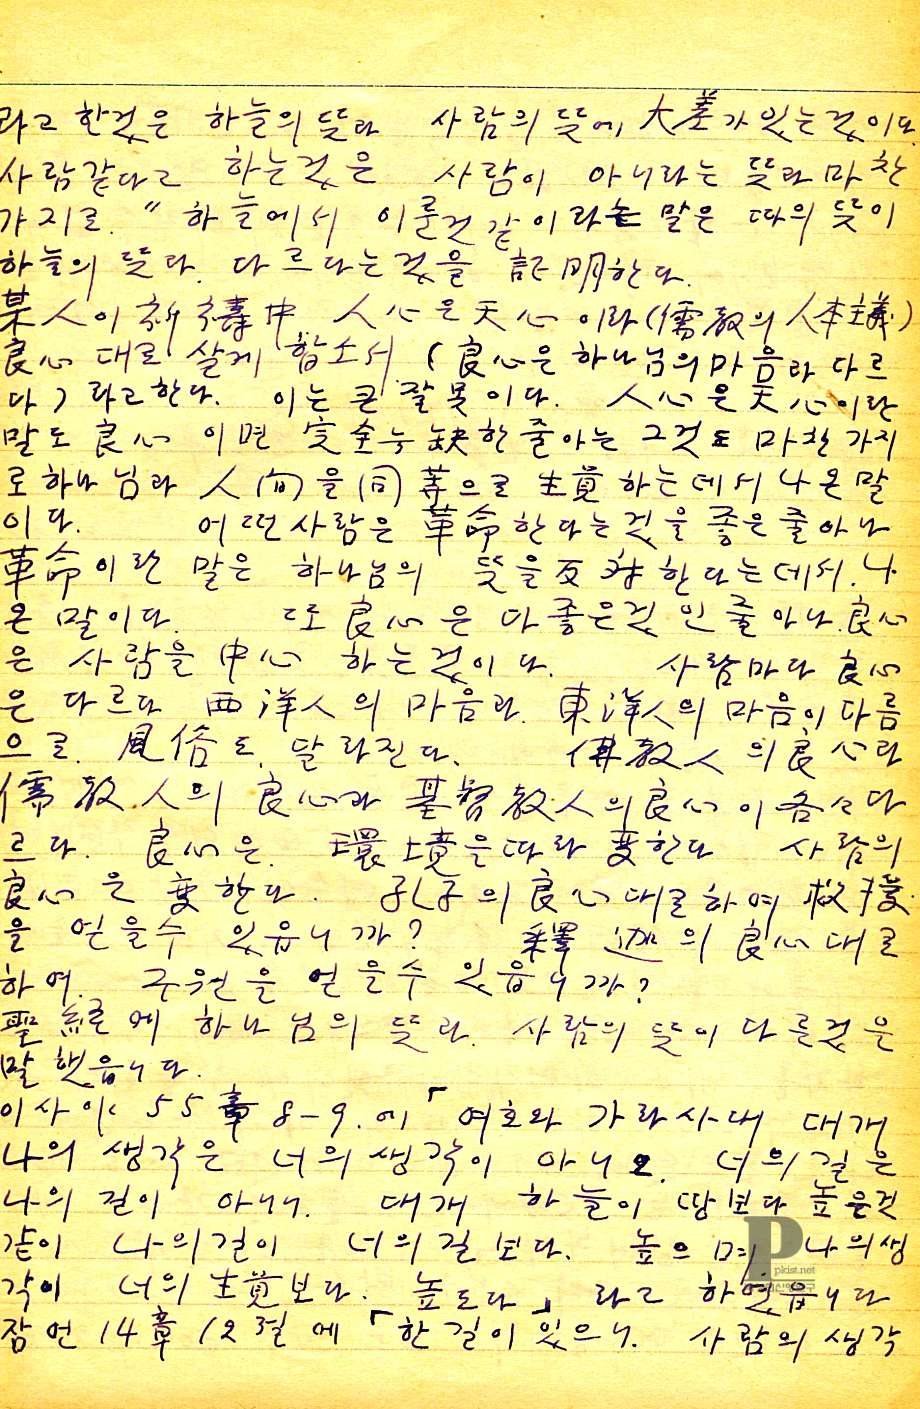 라고 한것은 하늘의 뜻과 사람의 뜻에 大差가 있는것이다.
사람같다고 하는것은 사람이 아니라는 뜻과 마찬
가지로. " 하늘에서 이룬것 같이 라는 말은 따의 뜻이
하늘의 뜻과. 다르다는것을 証明한다.
某人이 祈禱中 人心은 天心 이라 (儒敎의 人本主義)
良心 대로 살게 합소서. (良心은 하나님의 마음과 다르
다) 라고 한다. 이는 큰 잘못이다. 人心은 天心이란
말도 良心 이면 完全無缺한줄아는 그것도 마찬가지
로 하나님과 人間을 同等으로 生覚 하는데서 나온 말
이다. 어떤사람은 革命한다는것을 좋은줄아나
革命이란 말은 하나님의 뜻을 反対한다는데서. 나
온 말이다. 또 良心은 다 좋은것 인줄아나. 良心
은 사람을 中心 하는것이다. 사람마다 良心
은 다르다 西洋人의 마음과. 東洋人의 마음이 다름
으로. 風俗도. 달라진다. 佛敎人의 良心과
儒敎.人의 良心과 基督敎.人의 良心이 各各 다
르다. 良心은. 環境을따라 変한다 사람의
良心은 変한다. 孔子의 良心대로하여 救援
을 얻을수 있읍니까? 釋迦의 良心대로
하여. 구원을 얻을수 있읍니까?
聖経에 하나님의 뜻과. 사람의 뜻이 다른것은
말했읍니다.
이사야 55章 8-9.에「여호와 가라사대 대개
나의 생각은 너의 생각이 아니오. 너의 길은
나의 길이 아니니. 대개 하늘이 땅보다 높은것
같이 나의길이 너의길보다. 높으며 나의생
각이 너의 生覚보다. 높도다」라고 하였읍니다
잠언 14章 12절에「한 길이 있으나. 사람의 생각
P
pkist.net